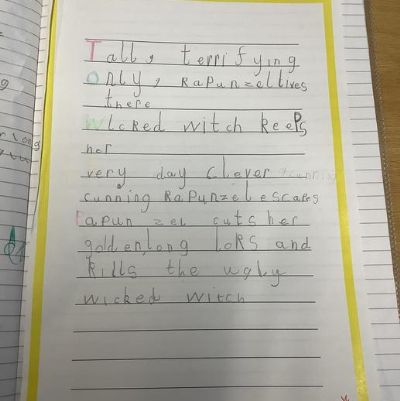 Tall, terrifying
only, Rapunzel lives
there
Wicked witch keeps
her
very day Clever
cunning Rapunzel escapes
Rapunzel cuts her
golden, long loks and
kills the ugly
wicked witch